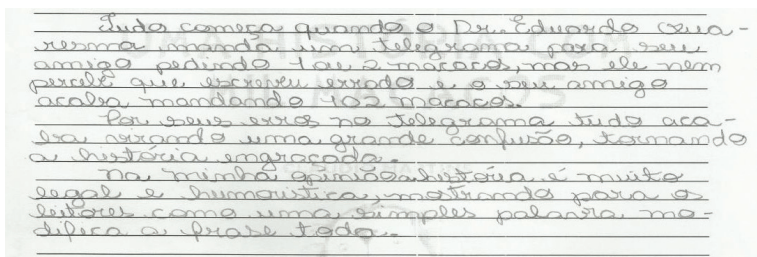 Tudo começa quando o Dr. Eduardo Qua-
resma manda um telegrama para seu
amigo pedindo 1 a 2 macacos, mas ele nem
percebe que escreveu errado e o seu amigo
acaba mandando 102 macacos.
Por seus erros no telegrama tudo aca-
ba virando uma grande confusão, tornando
a história engraçada.
Na minha opinião história é muito
legal e humoristica, mostrando para os
leitores como uma simples palavra mo-
difica a frase toda.